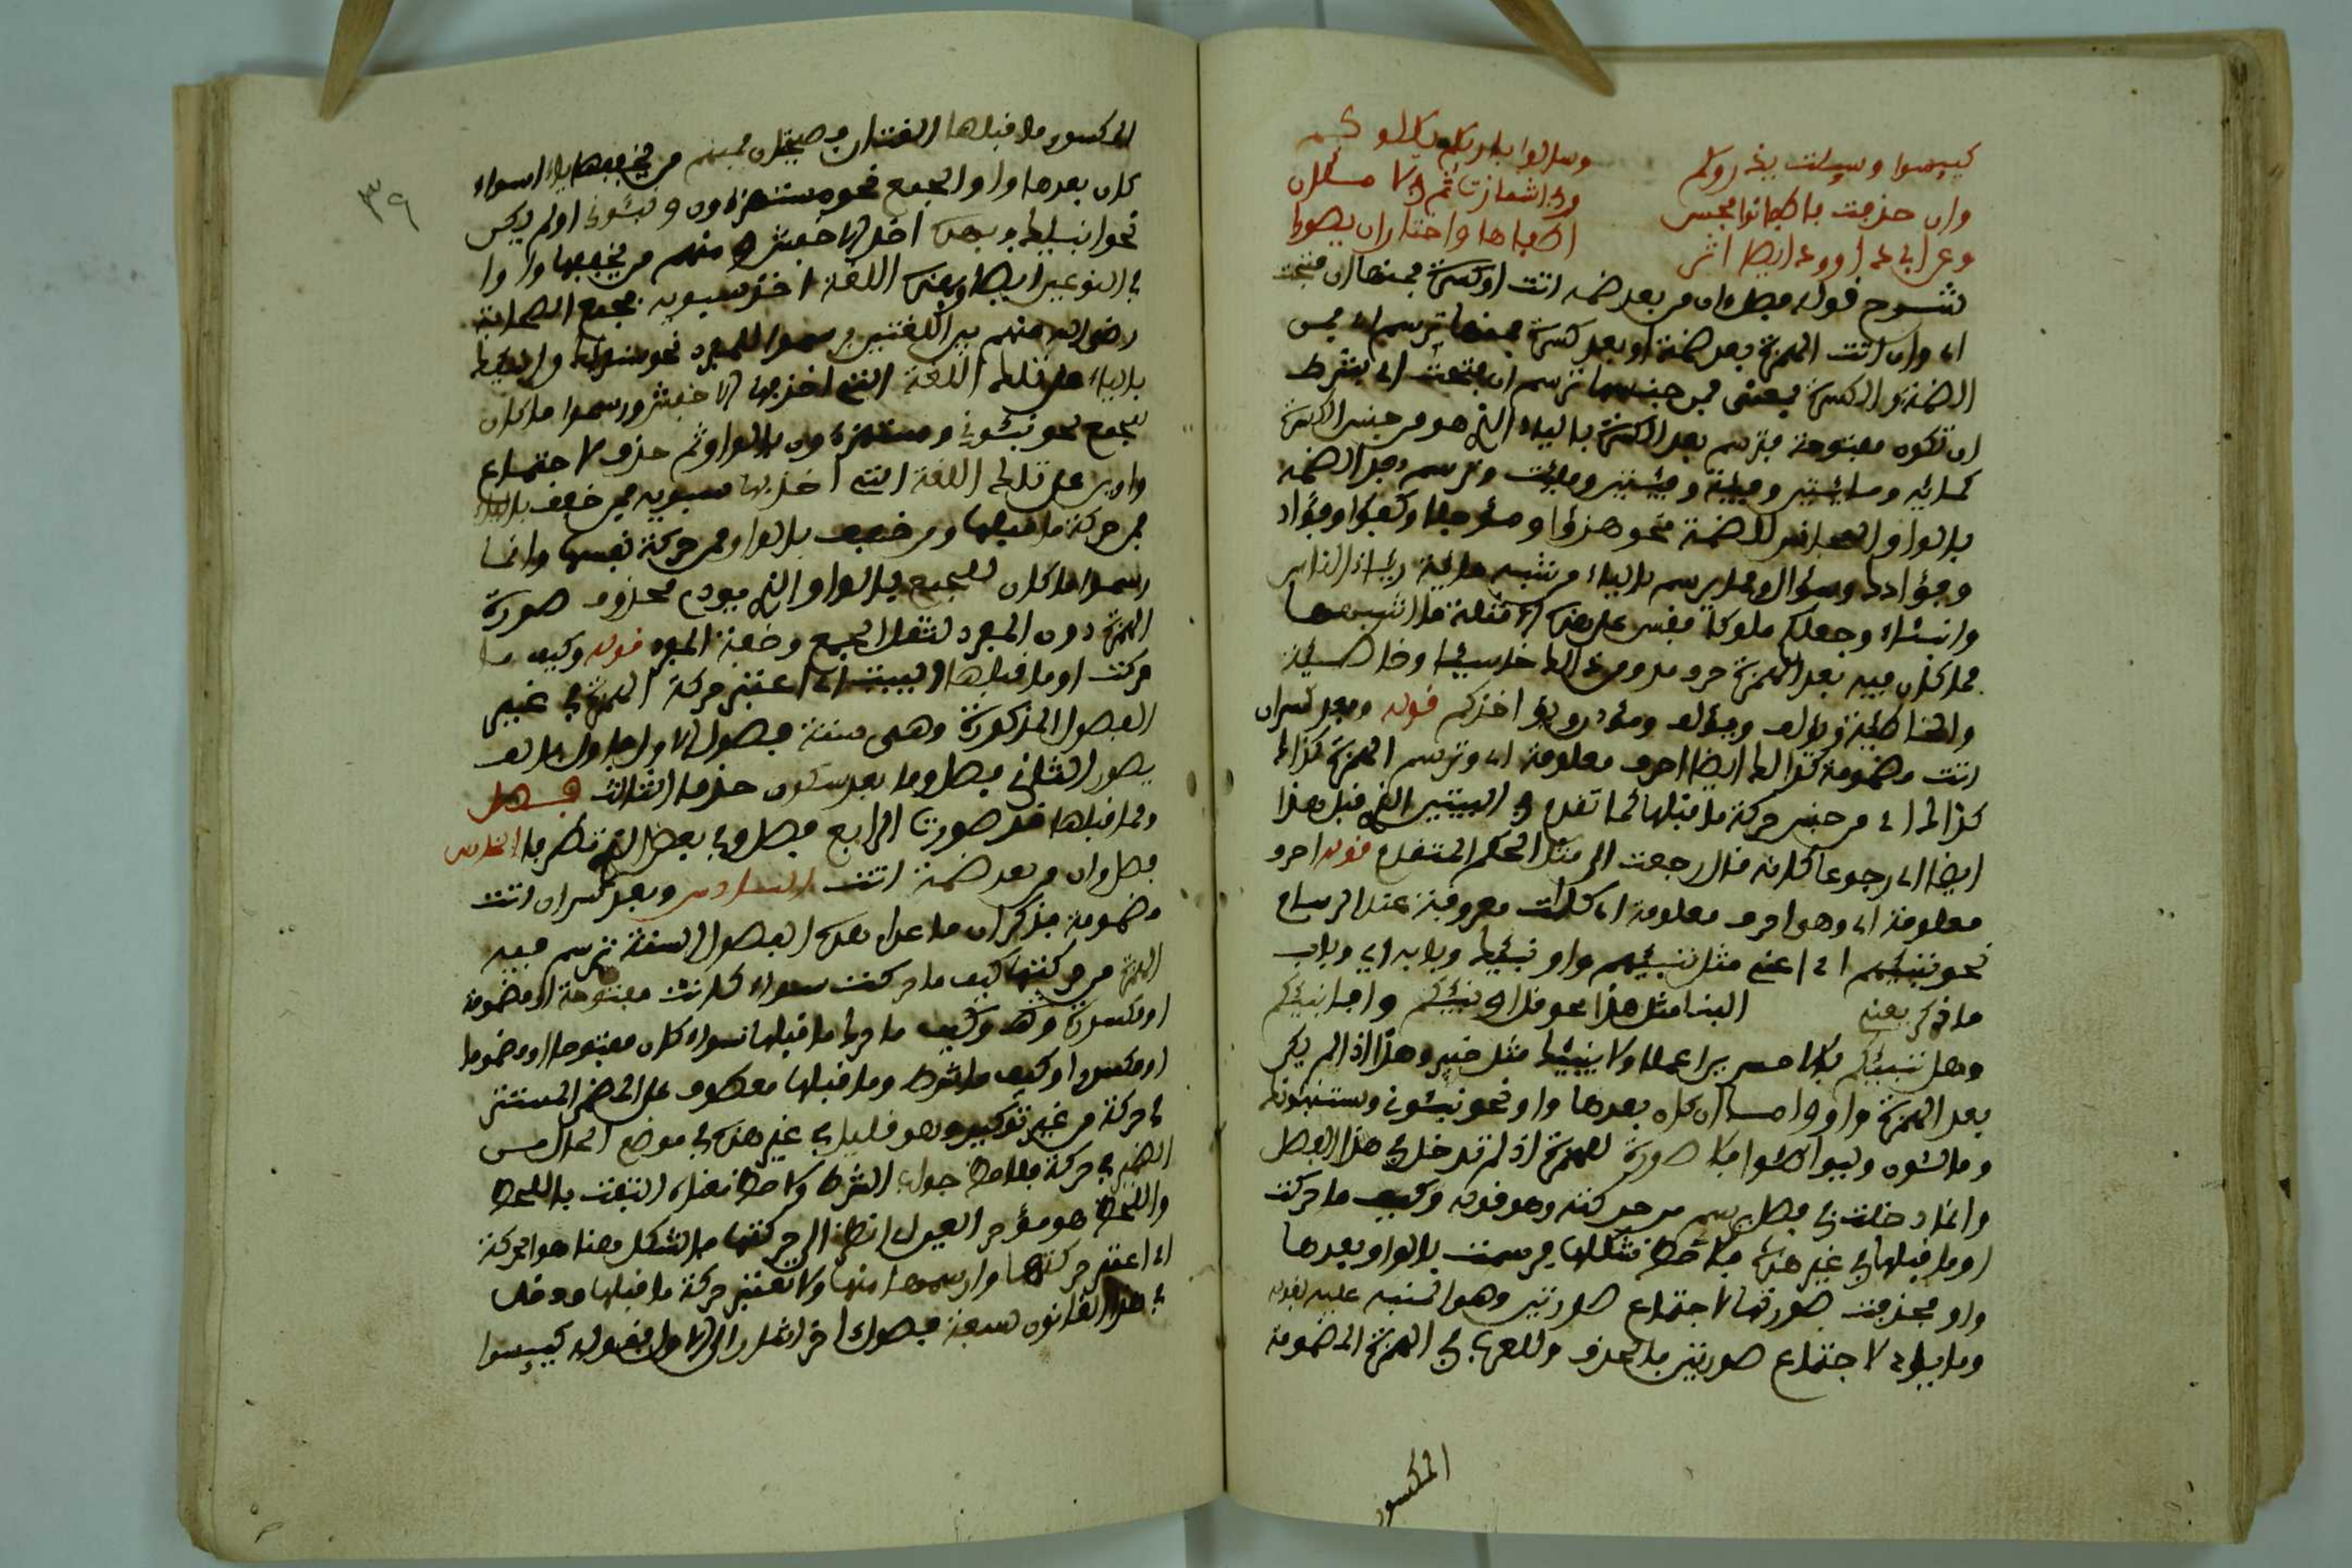 كييسوا وسيلت يذرؤكم
وان حذفت فاطمأنوا فحسن
وعن ابي داوود ايضا اثر
وفي اشمازت ثم في لاملأن
اطفاها واختار ان يصور
شرح قوله فصل وان من بعد ضمة اتت او كسرة فمنهما ان فتحت
اي وان اتت الهمزة بعد ضمة او بعد كسرة فمنهما ترسم اي فمن
الضمة والكسرة بمعنى فمن جنسهما ترسم ان فتحت اي بشرط
ان تكون مفتوحة فترسم بعد الكسرة بالياء التي هو من جنس الكسرة
كمائة ومائتين وفئة وفئتين وملئت وترسم بعد الضمة
بالواو المجانس للضمة نحو هزؤا ومؤجلا وكفؤا وفؤاد
وفؤادك وسؤال ومما يرسم بالياء من شبه مائة رياء الناس
وانشاء وجعلكم ملوكا فقس على هذه الامثلة ما اشبهها
مما كان فيه بعد الهمزة حرف مد ومن ذالك خاسئا وخاطئة
والخاطئة ويؤلف ومؤذن ويؤاخذكم قوله وبعد كسر ان
اتت مضمومة كذالك ايضا احرف معلومة اي وترسم الهمزة كذالك
كذالك اي من جنس حركة ما قبلها كما تقدم في البيتين الذي قبل هذا
ايضا اي رجوعا كانه قال رجعت الى مثل الحكم المتقدم قوله احرف
معلومة اي وهي احرف معلومة اي كلمات معروفة عند الرسام
نحو ننبئهم اي اعني مثل ننبئهم واونبئك وبابه اي وباب
ما ذكر يعني البنا مثل هذا نحو قل اؤنبئكم وانا انبئكم
وهل ننبئكم بالاخسرين اعمالا ولا ينبئك مثل خبير وهذا اذا لم يكن
بعد الهمزة واو واما ان كان بعدها واو نحو نبئوني ويستنبئونك
ومالئون وليواطئوا فلا صورة للهمزة اذ لم تدخل في هذا الفصل
وانما دخلت في فصل يرسم من حركته وهو قوله وكيف ما حركت
او ما قبلها في غير هذه فلاحظ شكلها فرسمت بالواو وبعدها
واو فحذفت صورتها لاجتماع صورتين وهو المنبه عليه بقوله
وما يؤدي لاجتماع صورتين فالحذف وللعرب في الهمزة المضمومة
المكسور
٣٩
المكسور ما قبلها لغتان فصيحتان فمنهم من يخففها ياء سواء
كان بعدها واو الجمع نحو مستهزءون ونبئوني او لم يكن
نحو انبئك وبهذه اخذ الاخفش ومنهم من يخففها واوا
في النوعين ايضا وبهذه اللغة اخذ سيبويه فجمع الصحابة
رضي الله عنهم بين اللغتين فرسموا المفرد نحو سنقرئك وانبئك
بالياء على تلك اللغة التي اخذ بها الاخفش ورسموا ما كان
للجمع نحو نبئوني ومستهزءون بالواو ثم حذف لاجتماع
واوين على تلك اللغة التي اخذ بها سيبويه فمن خفف بالياء
فمن حركة ما قبلها ومن خفف بالواو فمن حركة نفسها وانما
رسموا ما كان للجمع بالواو التي يودي محذوف صورة
الهمزة دون المفرد لثقل الجمع وخفة المفرد قوله وكيف ما
حركت او ما قبلها البيت اي اعتبر حركة الهمزة في غير
الفصول المذكورة وهي ستة فصول الاول فاول بالف
يصور الثاني فصل وما بعد سكون حذفا الثالث فصل
ومما قبلها قد صورت الرابع فصل وفي بعض الذي تطرفا الخامس
فصل وان من بعد ضمة اتت السادس وبعد كسر ان اتت
مضمومة فذكر ان ما عدا هذه الفصول الستة ترسم فيه
الهمزة من حركتها كيف ما حركت سواء كانت مفتوحة او مضمومة
او مكسورة وكيف ما حرك ما قبلها سواء كان مفتوحا او مضموما
او مكسورا وكيف ما شرط وما قبلها معطوف على الضمير المستتر
في حركت من غير توكيد وهو قليل في غير هذه في موضع الحال من
الضمير في حركت فلاحظ جواب الشرط ولاحظ معناه التفت باللحظ
واللحظ هو مؤخر العين اي انظر الى حركتها فالشكل هنا هو الحركة
اي اعتبر حركتها وارسمها منها ولا تعتبر حركة ما قبلها ودخل
في هذا القانون سبعة فصول اخر اشار الى الاول بقوله كييسوا